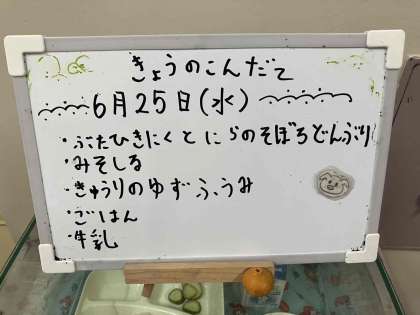 きょうのこんだて
6月25日(水)
・ぶたひきにくとにらのそぼろどんぶり
・みそしる
・きゅうりのゆずふうみ
・ごはん
・牛乳